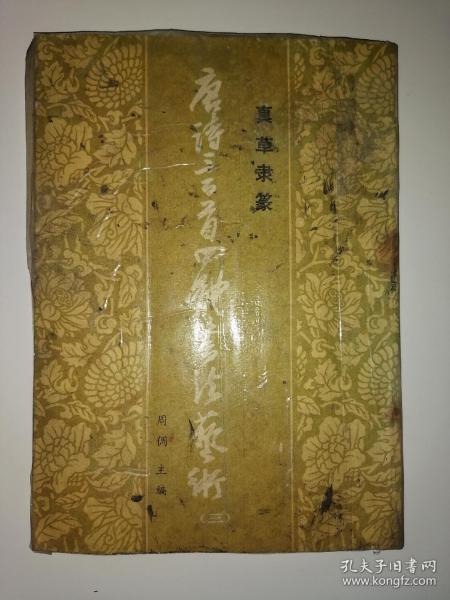 真草隶篆
唐诗三百首四体书法艺術
(三)
周倜 主编
孔夫子旧书网
www.kongfz.com